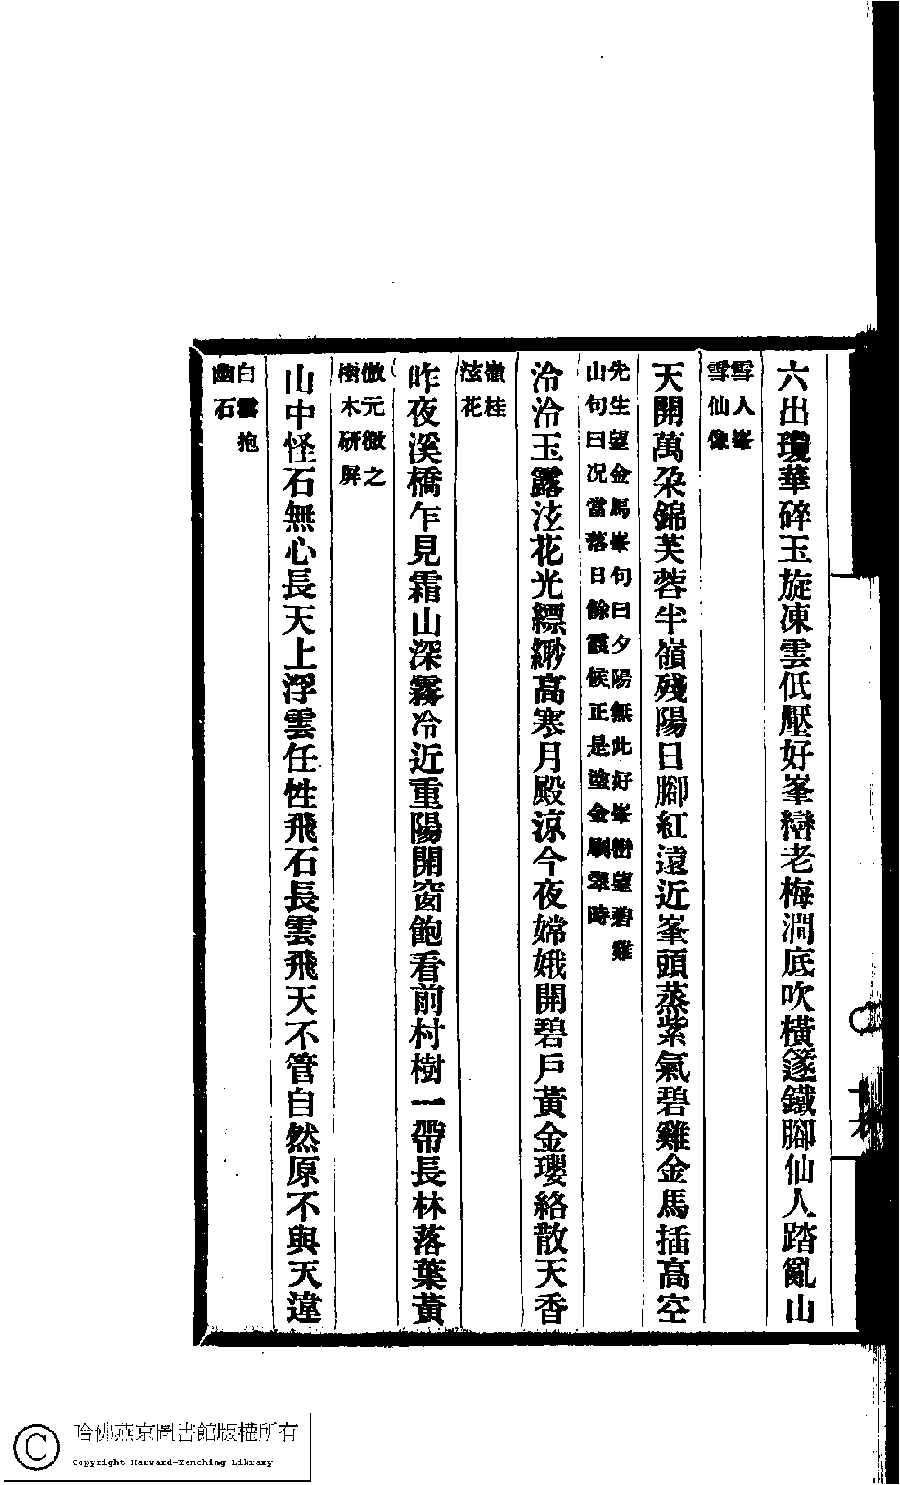 六出瓊華碎玉旋凍雲低壓好峯巒老梅澗底吹橫篴鐵腳仙人踏亂山
雪人峯
雪仙像
天開萬朶錦芙蓉半嶺殘陽日腳紅遠近峯頭蒸紫氣碧雞金馬插高空
先生望金馬峯句曰夕陽無此好峯巒望碧雞
山句曰况當落日餘霞候正是塗金刷翠時
泠泠玉露泫花光縹緲高寒月殿涼今夜嫦娥開碧戶黃金瓔絡散天香
巖桂
泫花
昨夜溪橋乍見霜山深霧冷近重陽開窗飽看前村樹一帶長林落葉黃
倣元微之
樹木研屏
山中怪石無心長天上浮雲任性飛石長雲飛天不管自然原不與天違
白雲抱
幽石
哈佛燕京圖書館版權所有
Copyright Harvard-Yenching Library